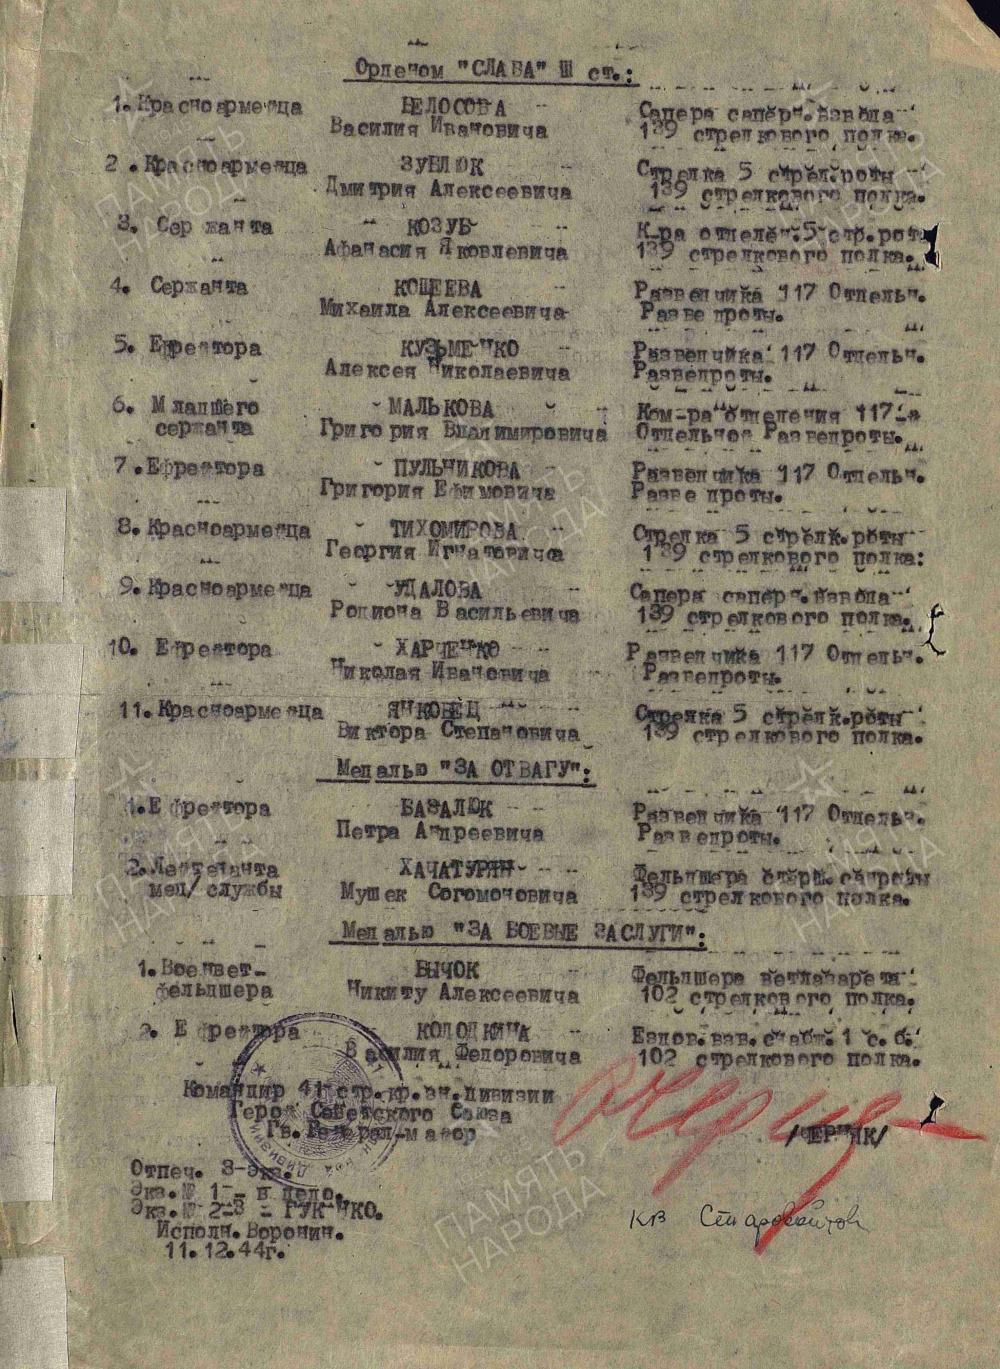 Орденом "СЛАВА" III ст.:
1. Красноармейца БЕЛОСОВА Сапера саперн. взвода
Василия Ивановича 139 стрелкового полка.
2. Красноармейца ЗУБЛЮК Стрелка 5 стрел. роты
Дмитрия Алексеевича 139 стрелкового полка.
3. Сержанта КОЗУБ К-ра отделен. 5 стр. роты
Афанасия Яковлевича 139 стрелкового полка.
4. Сержанта КОЩЕЕВА Разведчика 117 Отдельн.
Михаила Алексеевича Разведроты.
5. Ефрейтора КУЗЬМЕНКО Разведчика 117 Отдельн.
Алексея Николаевича Разведроты.
6. Младшего МАЛЬКОВА Ком-ра отделения 117-й
сержанта Григория Владимировича Отдельной Разведроты.
7. Ефрейтора ПУЛЬНИКОВА Разведчика 117 Отдельн.
Григория Ефимовича Разведроты.
8. Красноармейца ТИХОМИРОВА Стрелка 5 стрелк. роты
Георгия Игнатовича 139 стрелкового полка:
9. Красноармейца УДАЛОВА Сапера саперн. взвода
Родиона Васильевича 139 стрелкового полка.
10. Ефрейтора ХАРЧЕНКО Разведчика 117 Отдельн.
Николая Ивановича Разведроты.
11. Красноармейца ЯНКОВЕЦ Стрелка 5 стрелк. роты
Виктора Степановича 139 стрелкового полка.
Медалью "ЗА ОТВАГУ":
1. Ефрейтора БАЗАЛЮК Разведчика 117 Отдельн.
Петра Андреевича Разведроты.
2. Лейтенанта ХАЧАТУРЯН Фельдшера стрел.
мед/службы Мушек Согомоновича 139 стрелкового полка.
Медалью "ЗА БОЕВЫЕ ЗАСЛУГИ":
1. Военвет- БЫЧОК Фельдшера ветлазарета
фельдшера Никиту Алексеевича 102 стрелкового полка.
2. Ефрейтора КОЛОДКИНА Ездов. взв. снабж. 1 с.б.
Василия Федоровича 102 стрелкового полка.
Командир 41 стр. кр. зн. дивизии
Герой Советского Союза
Гв. Генерал-майор
/ЧЕРНЯК/
Отпеч. 3-экз.
Экз. № 1 - в дело.
Экз. № 2-3 -
Исполн. Воронин.
11.12.44г.
кв
ПАМЯТЬ
НАРОДА